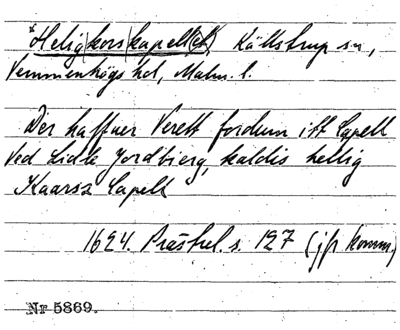 *Helig|kors|kapell(et), Källstrup sn,
Vemmenhögs hd, Malm. l.
Der haffuer Verett fordum itt Capell
Ved Lidle Jordbierg, kaldis hellig
Kaarsz Capell
1624. Prästrel. s. 127 (jfr komm)
Nr 5869.